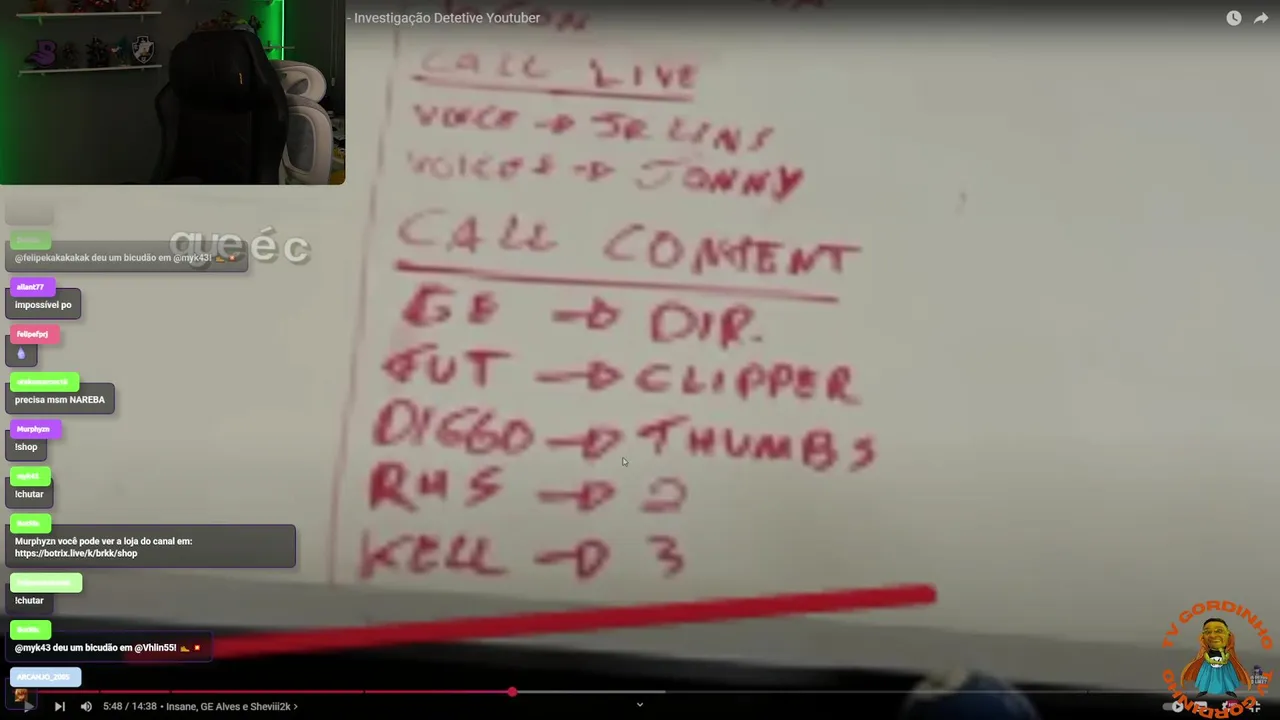 - Investigação Detetive Youtuber
CALL LIVE
VOICE → JR LINS
VOICE 2 → JONNY
CALL CONTENT
GE → DIR.
GUT → CLIPPER
DIGGO → THUMBS
RHS → 2
KELL → 3
que é c
@felipekakakakak deu um bicudão em @myk43!
allant77
impossível po
felipefprj
precisa msm NAREBA
Murphyzn
!shop
myk43
!chutar
Murphyzn você pode ver a loja do canal em:
https://botrix.live/k/brkk/shop
!chutar
@myk43 deu um bicudão em @Vhlin55!
ARCANJO_2005
5:48 / 14:38 • Insane, GE Alves e Sheviii2k >
TV GORDINHO
TV GORDINHO